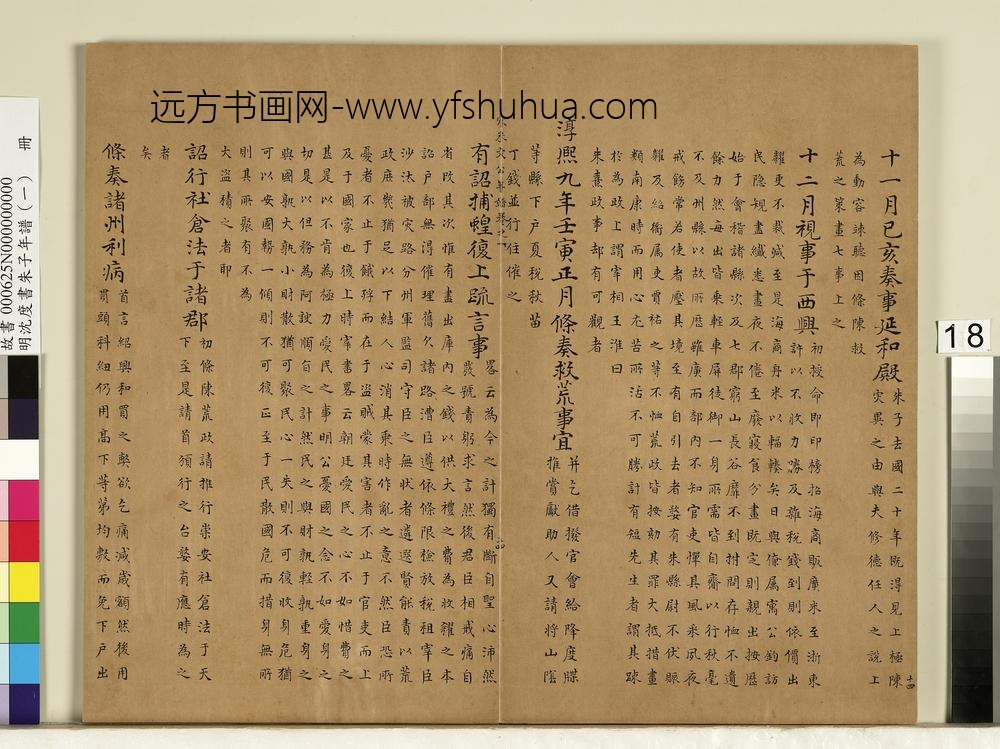 远方书画网-www.yfshuhua.com
十一月己亥奏事延和殿
朱子去國二十年既得見上極陳
灾異之由與夫修德任人之說上
為動容竦聽因條陳救
荒之策畫七事上之
十二月視事于西興
初被命即印榜招海商販廣米至浙東
許以不收力勝及雜稅錢到則依價出
糶更不裁減至是海商舟米以輻輳矣日與僚屬寓公鈞訪
民隐規畫纖悉晝夜不倦至廢寢食分畫既定則親出按歷
始于會稽諸縣次及七郡窮山長谷靡不到拊問存恤不遺
餘力然每出皆乘輕車屏徒御一身所需皆自齎以行秋毫
不及州縣以故所歷雖廣而部內不知官吏憚其風采夙夜
戒飭常若使者壓其境至有自引去者婺有朱縣尉不伏賑
糶及紹衢屬吏賈祐之等不恤荒政皆按劾其罪大抵措畫
類南康時而用心尤苦所沾不可勝計有短先生者謂其踈
於為政上謂宰相王淮曰
朱熹政事却有可觀者
淳熙九年壬寅正月條奏救荒事宜
并乞借撥官會給降度牒
推賞獻助人又請將山陰
等縣下户夏稅秋苗
丁錢並行住催之
有詔捕蝗復上疏言事
畧云為今之計獨有斷自聖心沛然
發號責躬求言然後君臣相戒痛自
省改其次惟有盡出庫內之錢以供大禮之費為收糴之本
詔户部無得催理舊欠諸路漕臣遵依條限檢放稅租宰臣
沙汰被灾路分州軍監司守臣之無狀者遴選賢能責以荒
政庶㡬猶足以下結人心消其乘時作亂之意不然臣恐所
憂者不止于餓殍而在于盗賊蒙其害者不止于官吏而上
及于國家也復上時宰書畧云朝廷愛民之心不如惜費之
甚是以不肯為極力愛民之事明公憂國之念不如愛身之
切是以但務為阿諛順旨之計然民之與財孰輕孰重身之
與國孰大孰小財散猶可聚民心一失則不可復收身危猶
可以安國勢一傾則不可復正至于民散國危而措身無所
則其所聚有不為
大盜積之者耶
詔行社倉法于諸郡
初條陳荒政請推行崇安社倉法于天
下至是請首頒行之台婺有應時為之
者
矣
條奏諸州利病
首言紹興和買之弊欲乞痛減歲額然後用
貫頭科紐仍用高下等第均敷而免下户出
十四
18
故書 000625N000000000 冊
明沈度書朱子年譜(一)